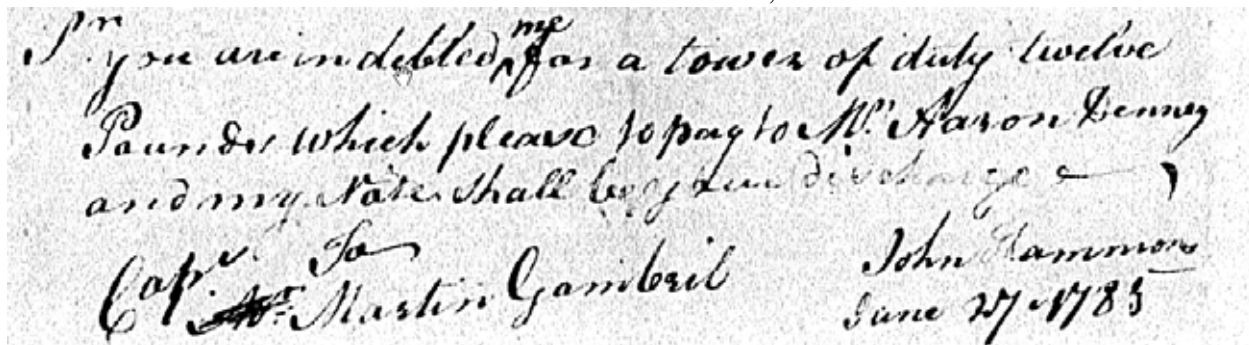 Sr. you are indebted me for a tower of duty twelve
Pounds which please to pay to Mr. Aaron Denney
and my Note shall be your discharge
To
Capt. Martin Gambril
John Hammons
June 27 1785